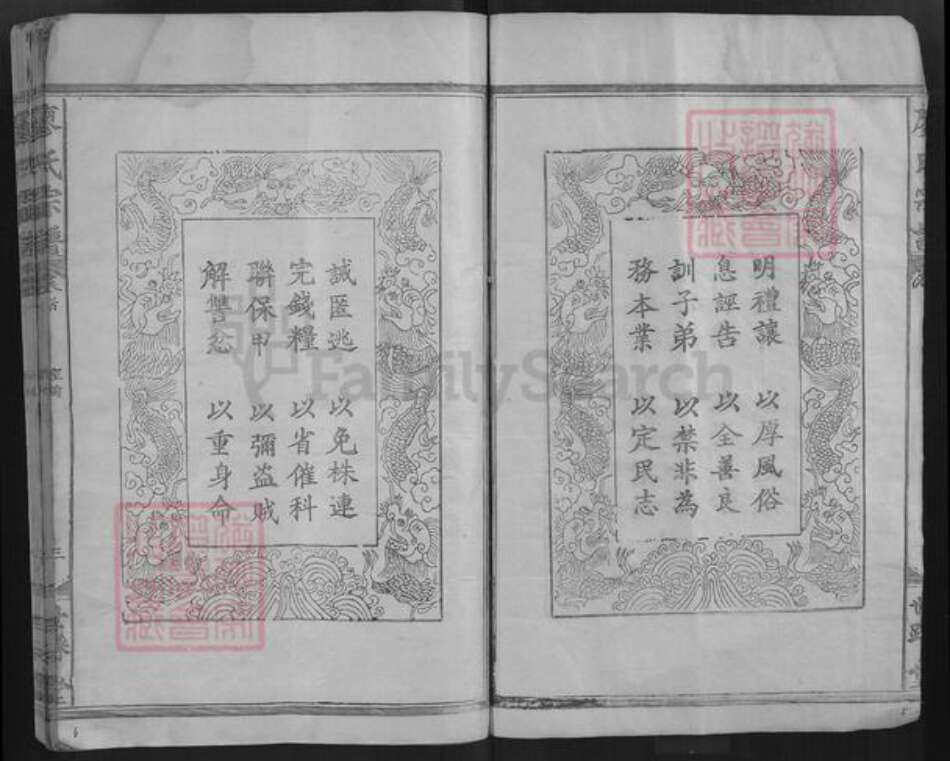 明禮讓 以厚風俗
息誣告 以全善良
訓子弟 以禁非為
務本業 以定民志
誡匿逃 以免株連
完錢糧 以省催科
聯保甲 以彌盗賊
解讐忿 以重身命
氏宗譜
三
5
6
FamilySearch